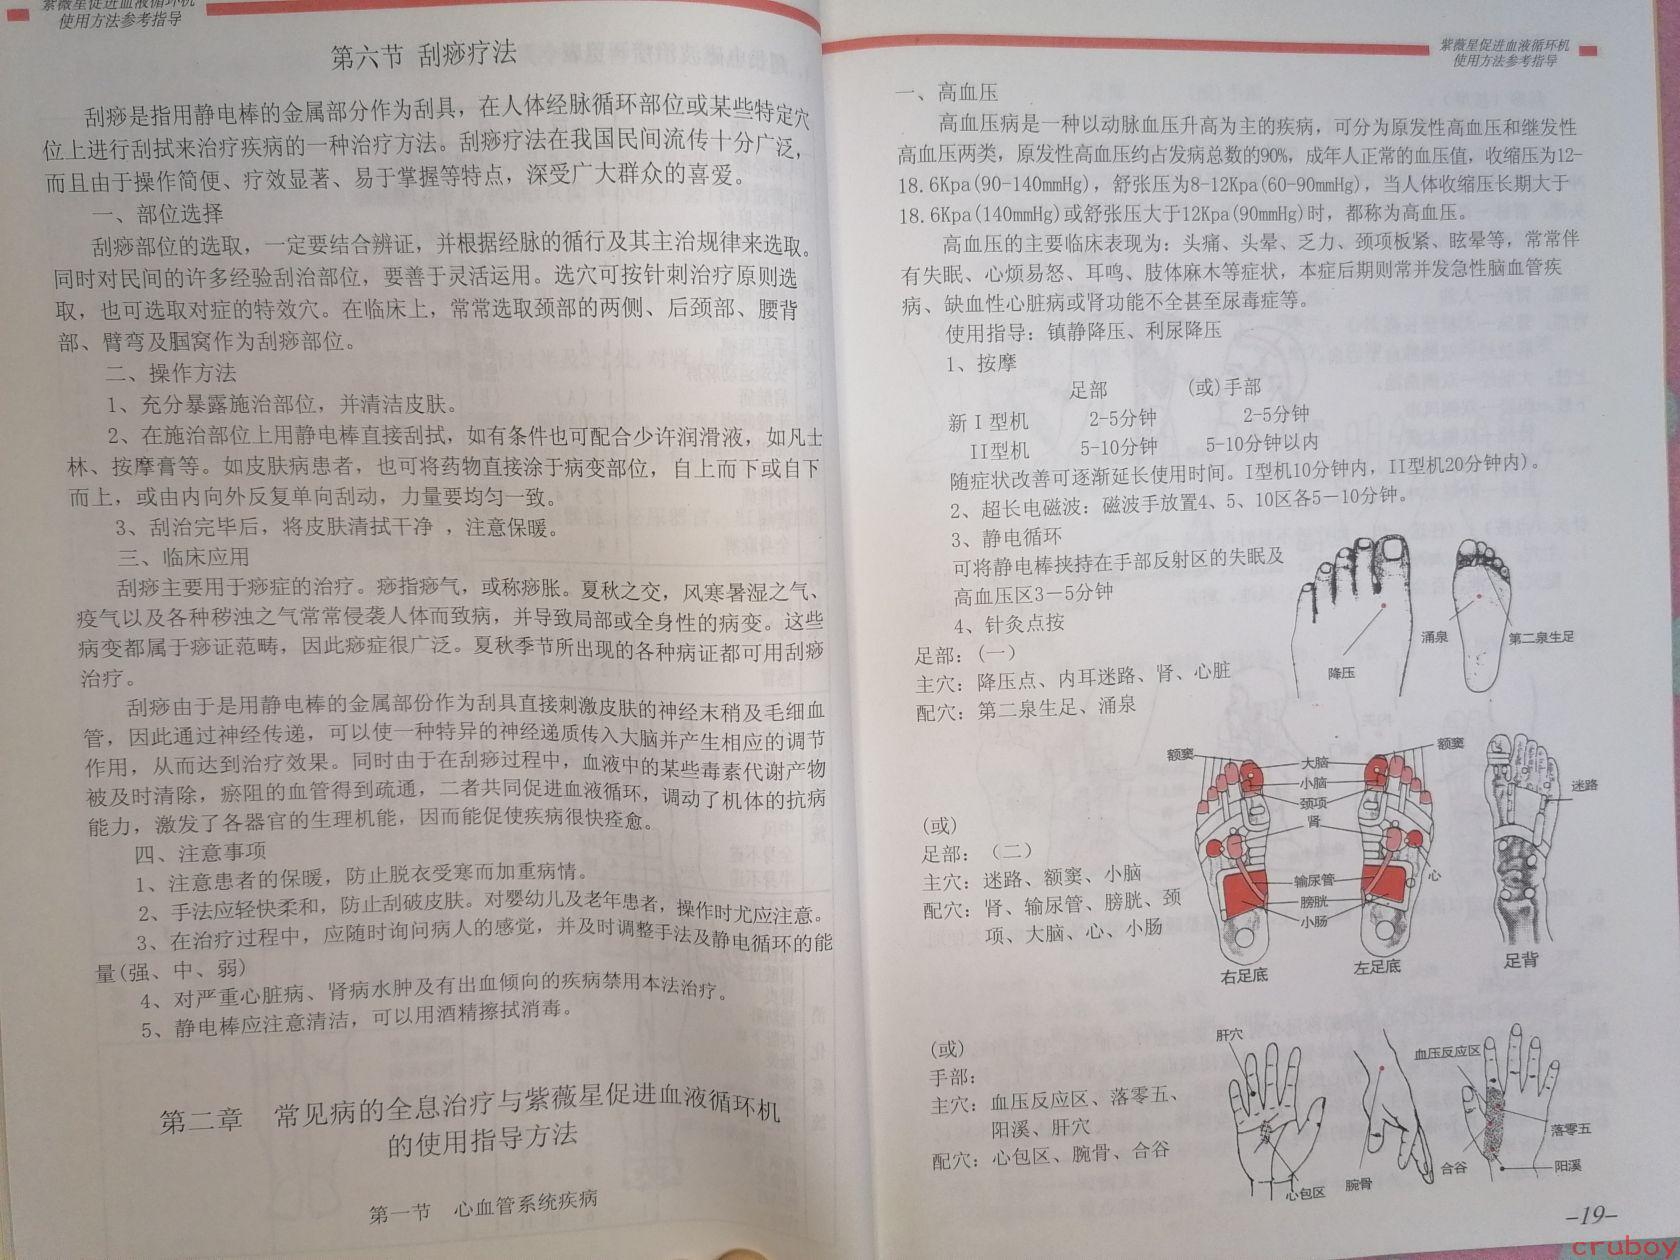 紫薇星促进血液循环机
使用方法参考指导
第六节 刮痧疗法
刮痧是指用静电棒的金属部分作为刮具，在人体经脉循环部位或某些特定穴
位上进行刮拭来治疗疾病的一种治疗方法。刮痧疗法在我国民间流传十分广泛，
而且由于操作简便、疗效显著、易于掌握等特点，深受广大群众的喜爱。
一、部位选择
刮痧部位的选取，一定要结合辨证，并根据经脉的循行及其主治规律来选取。
同时对民间的许多经验刮治部位，要善于灵活运用。选穴可按针刺治疗原则选
取，也可选取对症的特效穴。在临床上，常常选取颈部的两侧、后颈部、腰背
部、臂弯及腘窝作为刮痧部位。
二、操作方法
1、充分暴露施治部位，并清洁皮肤。
2、在施治部位上用静电棒直接刮拭，如有条件也可配合少许润滑液，如凡士
林、按摩膏等。如皮肤病患者，也可将药物直接涂于病变部位，自上而下或自下
而上，或由内向外反复单向刮动，力量要均匀一致。
3、刮治完毕后，将皮肤清拭干净 ，注意保暖。
三、临床应用
刮痧主要用于痧症的治疗。痧指痧气，或称痧胀。夏秋之交，风寒暑湿之气、
疫气以及各种秽浊之气常常侵袭人体而致病，并导致局部或全身性的病变。这些
病变都属于痧证范畴，因此痧症很广泛。夏秋季节所出现的各种病证都可用刮痧
治疗。
刮痧由于是用静电棒的金属部份作为刮具直接刺激皮肤的神经末稍及毛细血
管，因此通过神经传递，可以使一种特异的神经递质传入大脑并产生相应的调节
作用，从而达到治疗效果。同时由于在刮痧过程中，血液中的某些毒素代谢产物
被及时清除，瘀阻的血管得到疏通，二者共同促进血液循环，调动了机体的抗病
能力，激发了各器官的生理机能，因而能促使疾病很快痊愈。
四、注意事项
1、注意患者的保暖，防止脱衣受寒而加重病情。
2、手法应轻快柔和，防止刮破皮肤。对婴幼儿及老年患者，操作时尤应注意。
3、在治疗过程中，应随时询问病人的感觉，并及时调整手法及静电循环的能
量(强、中、弱)
4、对严重心脏病、肾病水肿及有出血倾向的疾病禁用本法治疗。
5、静电棒应注意清洁，可以用酒精擦拭消毒。
第二章 常见病的全息治疗与紫薇星促进血液循环机
的使用指导方法
第一节 心血管系统疾病
紫薇星促进血液循环机
使用方法参考指导
一、高血压
高血压病是一种以动脉血压升高为主的疾病，可分为原发性高血压和继发性
高血压两类，原发性高血压约占发病总数的90%，成年人正常的血压值，收缩压为12-
18.6Kpa(90-140mmHg)，舒张压为8-12Kpa(60-90mmHg)，当人体收缩压长期大于
18.6Kpa(140mmHg)或舒张压大于12Kpa(90mmHg)时，都称为高血压。
高血压的主要临床表现为：头痛、头晕、乏力、颈项板紧、眩晕等，常常伴
有失眠、心烦易怒、耳鸣、肢体麻木等症状，本症后期则常并发急性脑血管疾
病、缺血性心脏病或肾功能不全甚至尿毒症等。
使用指导：镇静降压、利尿降压
1、按摩
足部 (或)手部
新Ｉ型机 2-5分钟 2-5分钟
II型机 5-10分钟 5-10分钟以内
随症状改善可逐渐延长使用时间。I型机10分钟内，II型机20分钟内)。
2、超长电磁波：磁波手放置4、5、10区各5－10分钟。
3、静电循环
可将静电棒挟持在手部反射区的失眠及
高血压区3－5分钟
4、针灸点按
足部：(一)
主穴：降压点、内耳迷路、肾、心脏
配穴：第二泉生足、涌泉
降压
涌泉
第二泉生足
(或)
足部：（二）
主穴：迷路、额窦、小脑
配穴：肾、输尿管、膀胱、颈
项、大脑、心、小肠
额窦
大脑
小脑
颈项
肾
输尿管
膀胱
小肠
额窦
心
迷路
右足底
左足底
足背
(或)
手部：
主穴：血压反应区、落零五、
阳溪、肝穴
配穴：心包区、腕骨、合谷
肝穴
心包区
腕骨
血压反应区
落零五
合谷
阳溪
-19-
cruboy